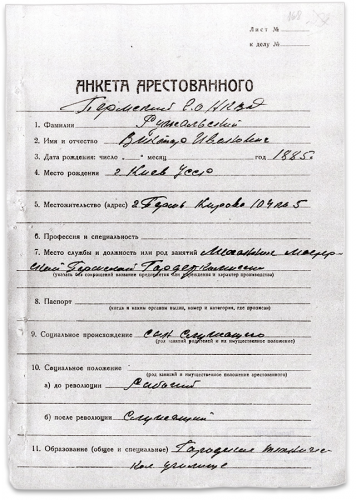 Лист №
к делу №
АНКЕТА АРЕСТОВАННОГО
Пермский Г.О НКВД
1. Фамилия
2. Имя и отчество Виктор Иванович
3. Дата рождения: число „ “ месяц год 1885.
4. Место рождения г Киев УССР
5. Местожительство (адрес) г Пермь Кирова 104 кв 5
6. Профессия и специальность
7. Место службы и должность или род занятий Механик мастер-
ской Пермской
(указать без сокращений название предприятия или учреждения и характер производства)
8. Паспорт
(когда и каким органом выдан, номер и категория, где прописан)
9. Социальное происхождение сын служащего
(род занятий родителей и их имущественное положение)
10. Социальное положение
(род занятий и имущественное положение арестованного)
а) до революции Рабочий
б) после революции Служащий
11. Образование (общее и специальные) Городское техничес-
кое училище